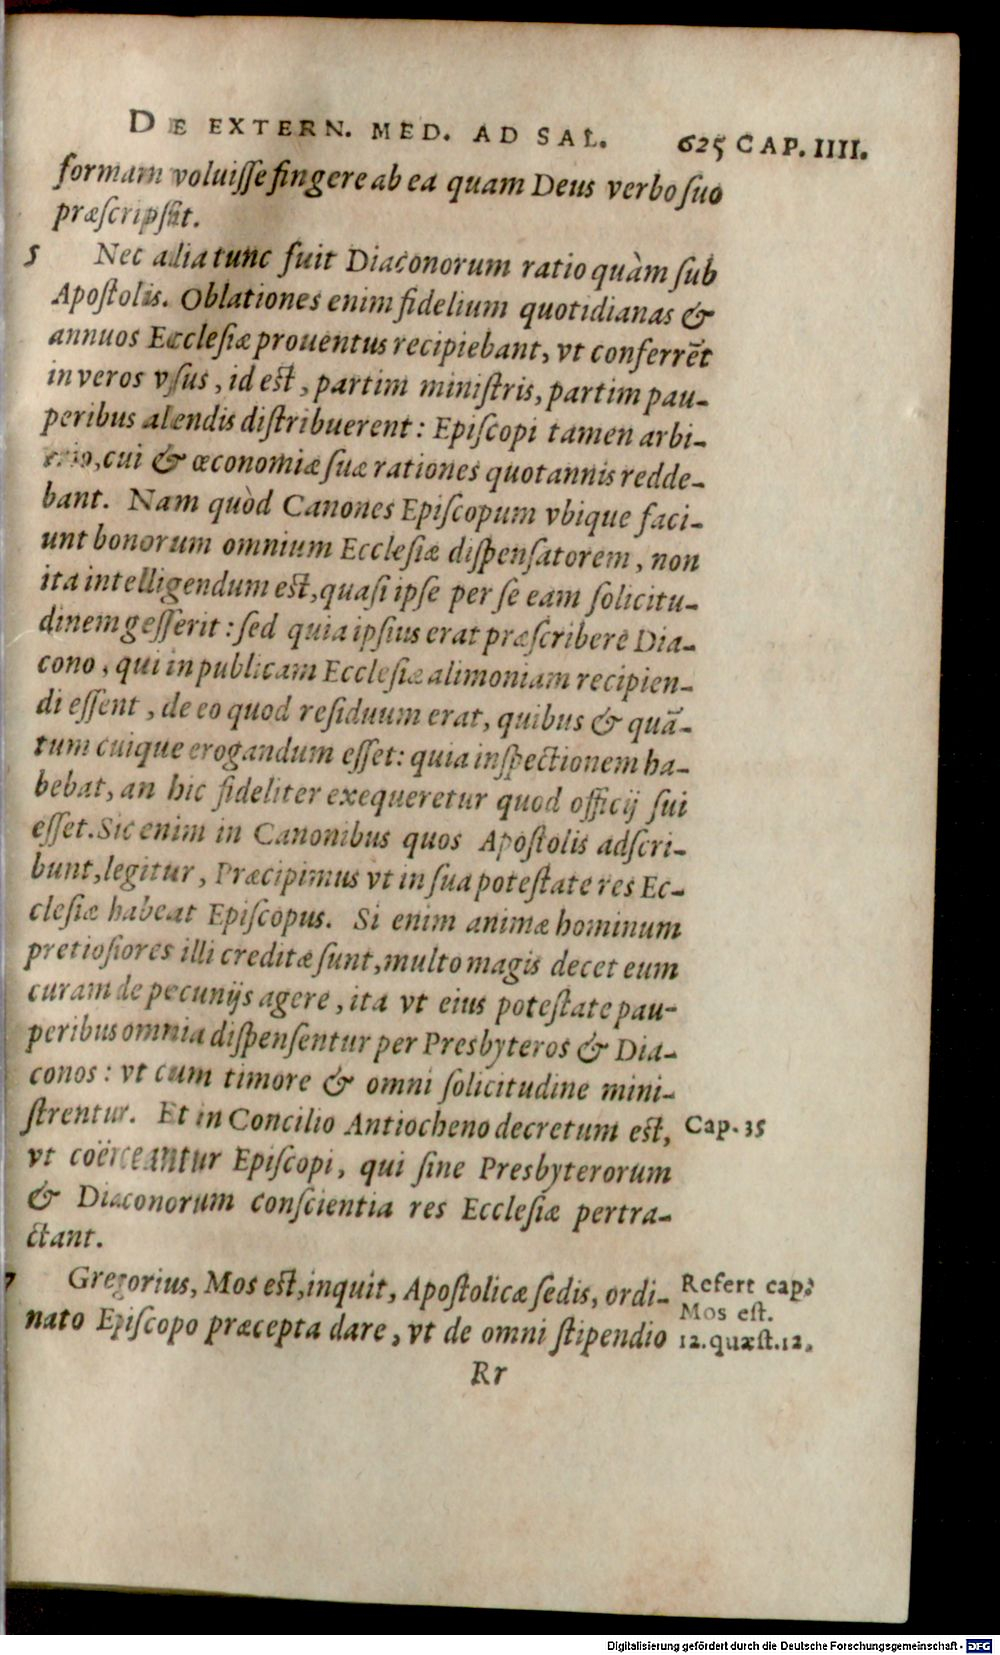 DE EXTERN. MED. AD SAL. 625 CAP. IIII.
formam voluiſſe fingere ab ea quam Deus verbo ſuo
præſcripſit.
5 Nec alia tunc fuit Diaconorum ratio quàm ſub
Apoſtolis. Oblationes enim fidelium quotidianas &
annuos Eccleſiæ prouentus recipiebant, vt conferrēt
in veros vſus, id eſt, partim miniſtris, partim pau-
peribus alendis diſtribuerent: Epiſcopi tamen arbi-
trio, cui & œconomiæ ſuæ rationes quotannis redde-
bant. Nam quòd Canones Epiſcopum vbique faci-
unt bonorum omnium Eccleſiæ diſpenſatorem, non
ita intelligendum eſt, quaſi ipſe per ſe eam ſolicitu-
dinem geſſerit: ſed quia ipſius erat præſcribere Dia-
cono, qui in publicam Eccleſiæ alimoniam recipien-
di eſſent, de eo quod reſiduum erat, quibus & quā-
tum cuique erogandum eſſet: quia inſpectionem ha-
bebat, an hic fideliter exequeretur quod officij ſui
eſſet. Sic enim in Canonibus quos Apoſtolis adſcri-
bunt, legitur, Præcipimus vt in ſua poteſtate res Ec-
cleſiæ habeat Epiſcopus. Si enim animæ hominum
pretioſiores illi creditæ ſunt, multo magis decet eum
curam de pecunijs agere, ita vt eius poteſtate pau-
peribus omnia diſpenſentur per Presbyteros & Dia-
conos: vt cum timore & omni ſolicitudine mini-
ſtrentur. Et in Concilio Antiocheno decretum eſt, Cap. 35
vt coërceantur Epiſcopi, qui ſine Presbyterorum
& Diaconorum conſcientia res Eccleſiæ pertra-
ctant.
7 Gregorius, Mos eſt, inquit, Apoſtolicæ ſedis, ordi- Refert cap.
nato Epiſcopo præcepta dare, vt de omni ſtipendio Mos eſt.
12. quæſt. 12.
Rr
Digitalisierung gefördert durch die Deutsche Forschungsgemeinschaft - DFG